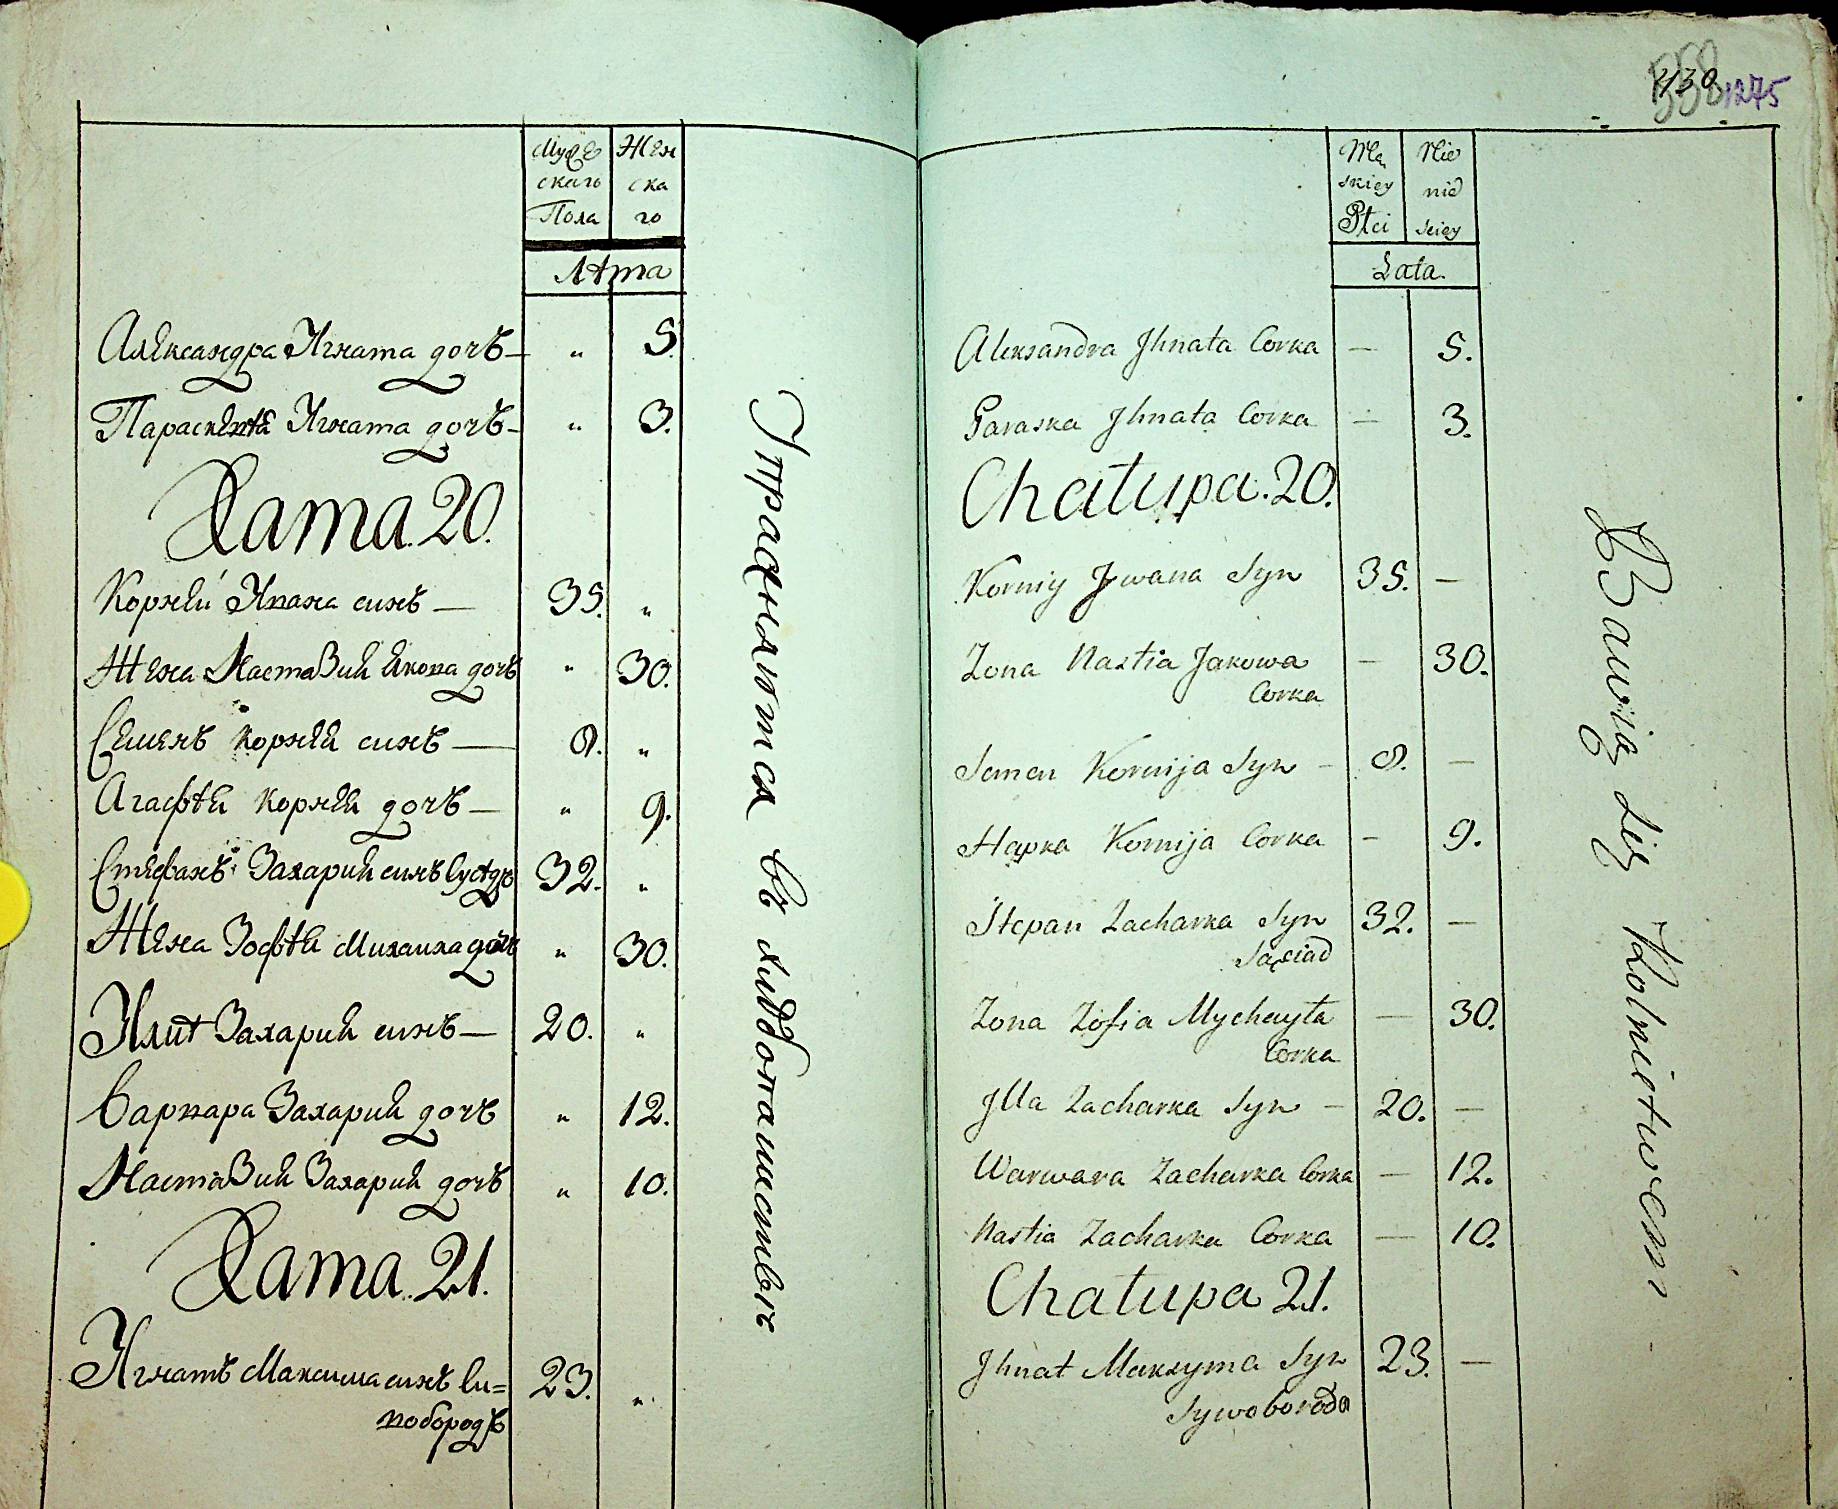 1275
Мужескаго Пола
Женскаго
Лѣта
Александра Игната дочъ — „ 5.
Параскевѣя Игната дочъ — „ 3.
Хата. 20.
Корнѣй Ивана синъ — 35. „
Жена Настазия Якова дочъ „ 30.
Семенъ Корнѣя синъ — 8. „
Агафѣя Корнѣя дочъ — „ 9.
Стефанъ Захария синъ Сусѣдъ 32. „
Жена Зофѣя Михаила дочъ „ 30.
Илиѣ Захария синъ — 20. „
Варвара Захария дочъ „ 12.
Настазия Захария дочъ „ 10.
Хата. 21.
Игнатъ Максима синъ Си= 23. „
вобородъ
Упражняются въ хлѣбопашествѣ
Męskiey Płci
Żeńskiey
Lata.
Aleksandra Jhnata Corka — 5.
Paraska Jhnata Corka — 3.
Chałupa. 20.
Korniy Jwana Syn 35. —
Zona Nastia Jakowa — 30.
Corka
Semen Kornija Syn — 8. —
Hapka Kornija Corka — 9.
Stepan Zacharka Syn 32. —
Sąsiad
Zona Zofia Mychayła — 30.
Corka
Jlla Zacharka Syn — 20. —
Warwara Zacharka Corka — 12.
Nastia Zacharka Corka — 10.
Chałupa 21.
Jhnat Maksyma Syn 23. —
Sywoboroda
Bawią Się Rolnictwem